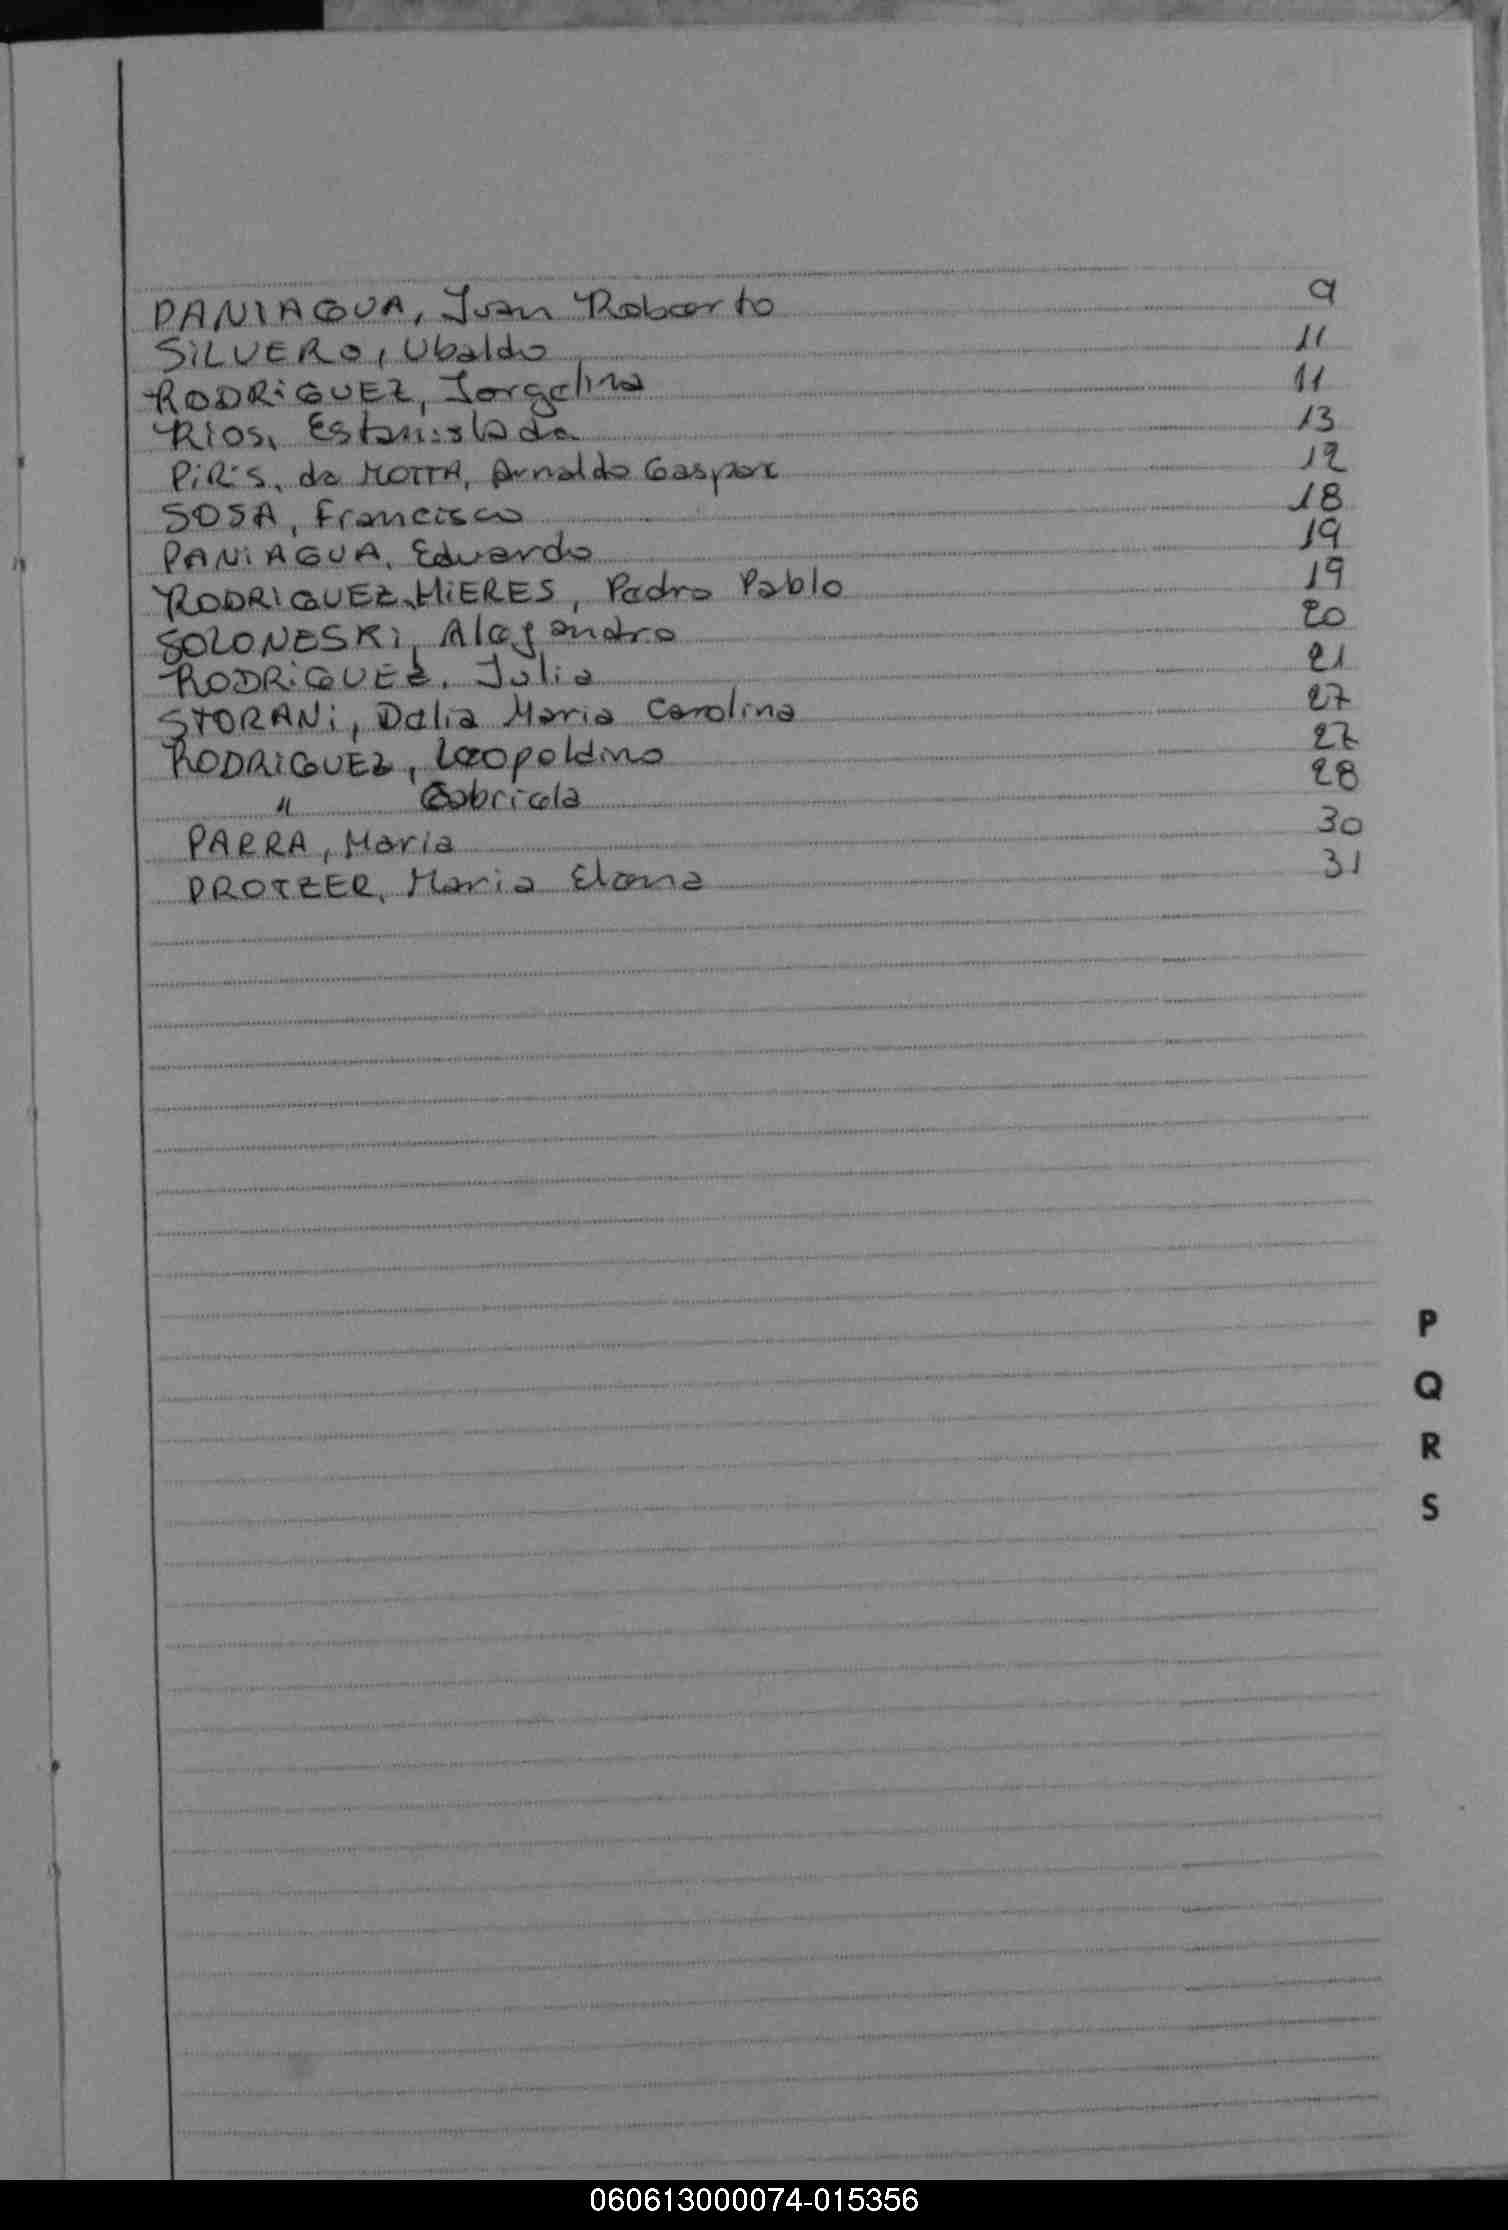 PANIAGUA, Juan Roberto 9
SILVERO, Ubaldo 11
RODRIGUEZ, Jorgelina 11
RIOS, Estanislada 13
PIRIS, da MOTTA, Arnaldo Gaspar 12
SOSA, Francisco 18
PANIAGUA, Eduardo 19
RODRIGUEZ MIERES, Pedro Pablo 19
SOLONESKI, Alejandro 20
RODRIGUEZ, Julia 21
STORANI, Delia Maria Carolina 27
RODRIGUEZ, Leopoldino 27
" Gabriela 28
PARRA, Maria 30
PROTZER, Maria Elena 31
P
Q
R
S
060613000074-015356